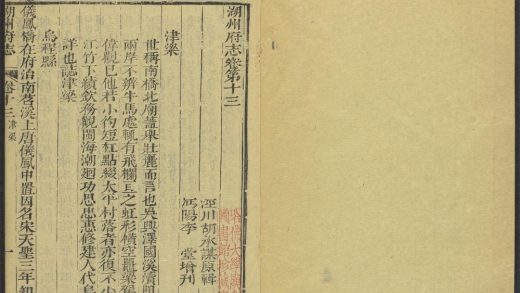 湖州府志卷第十三
涇川胡承謀原輯
沔陽李堂增刊
津梁
世稱南橋北廟蓋舉壯麗而言也吳興澤國溪
兩岸不辨牛馬處輒有飛欄亙之虹形橫空
偉觀已他若小彴短杠點綴太平村落者亦復不少
江竹下續欽務觀閩海潮廻功思忠惠修建人代
詳也誌津梁
烏程縣
儀鳳橋在府治南苕溪上唐儀鳳中置因名宋天聖三年知
湖州府志 卷十三 津梁 一